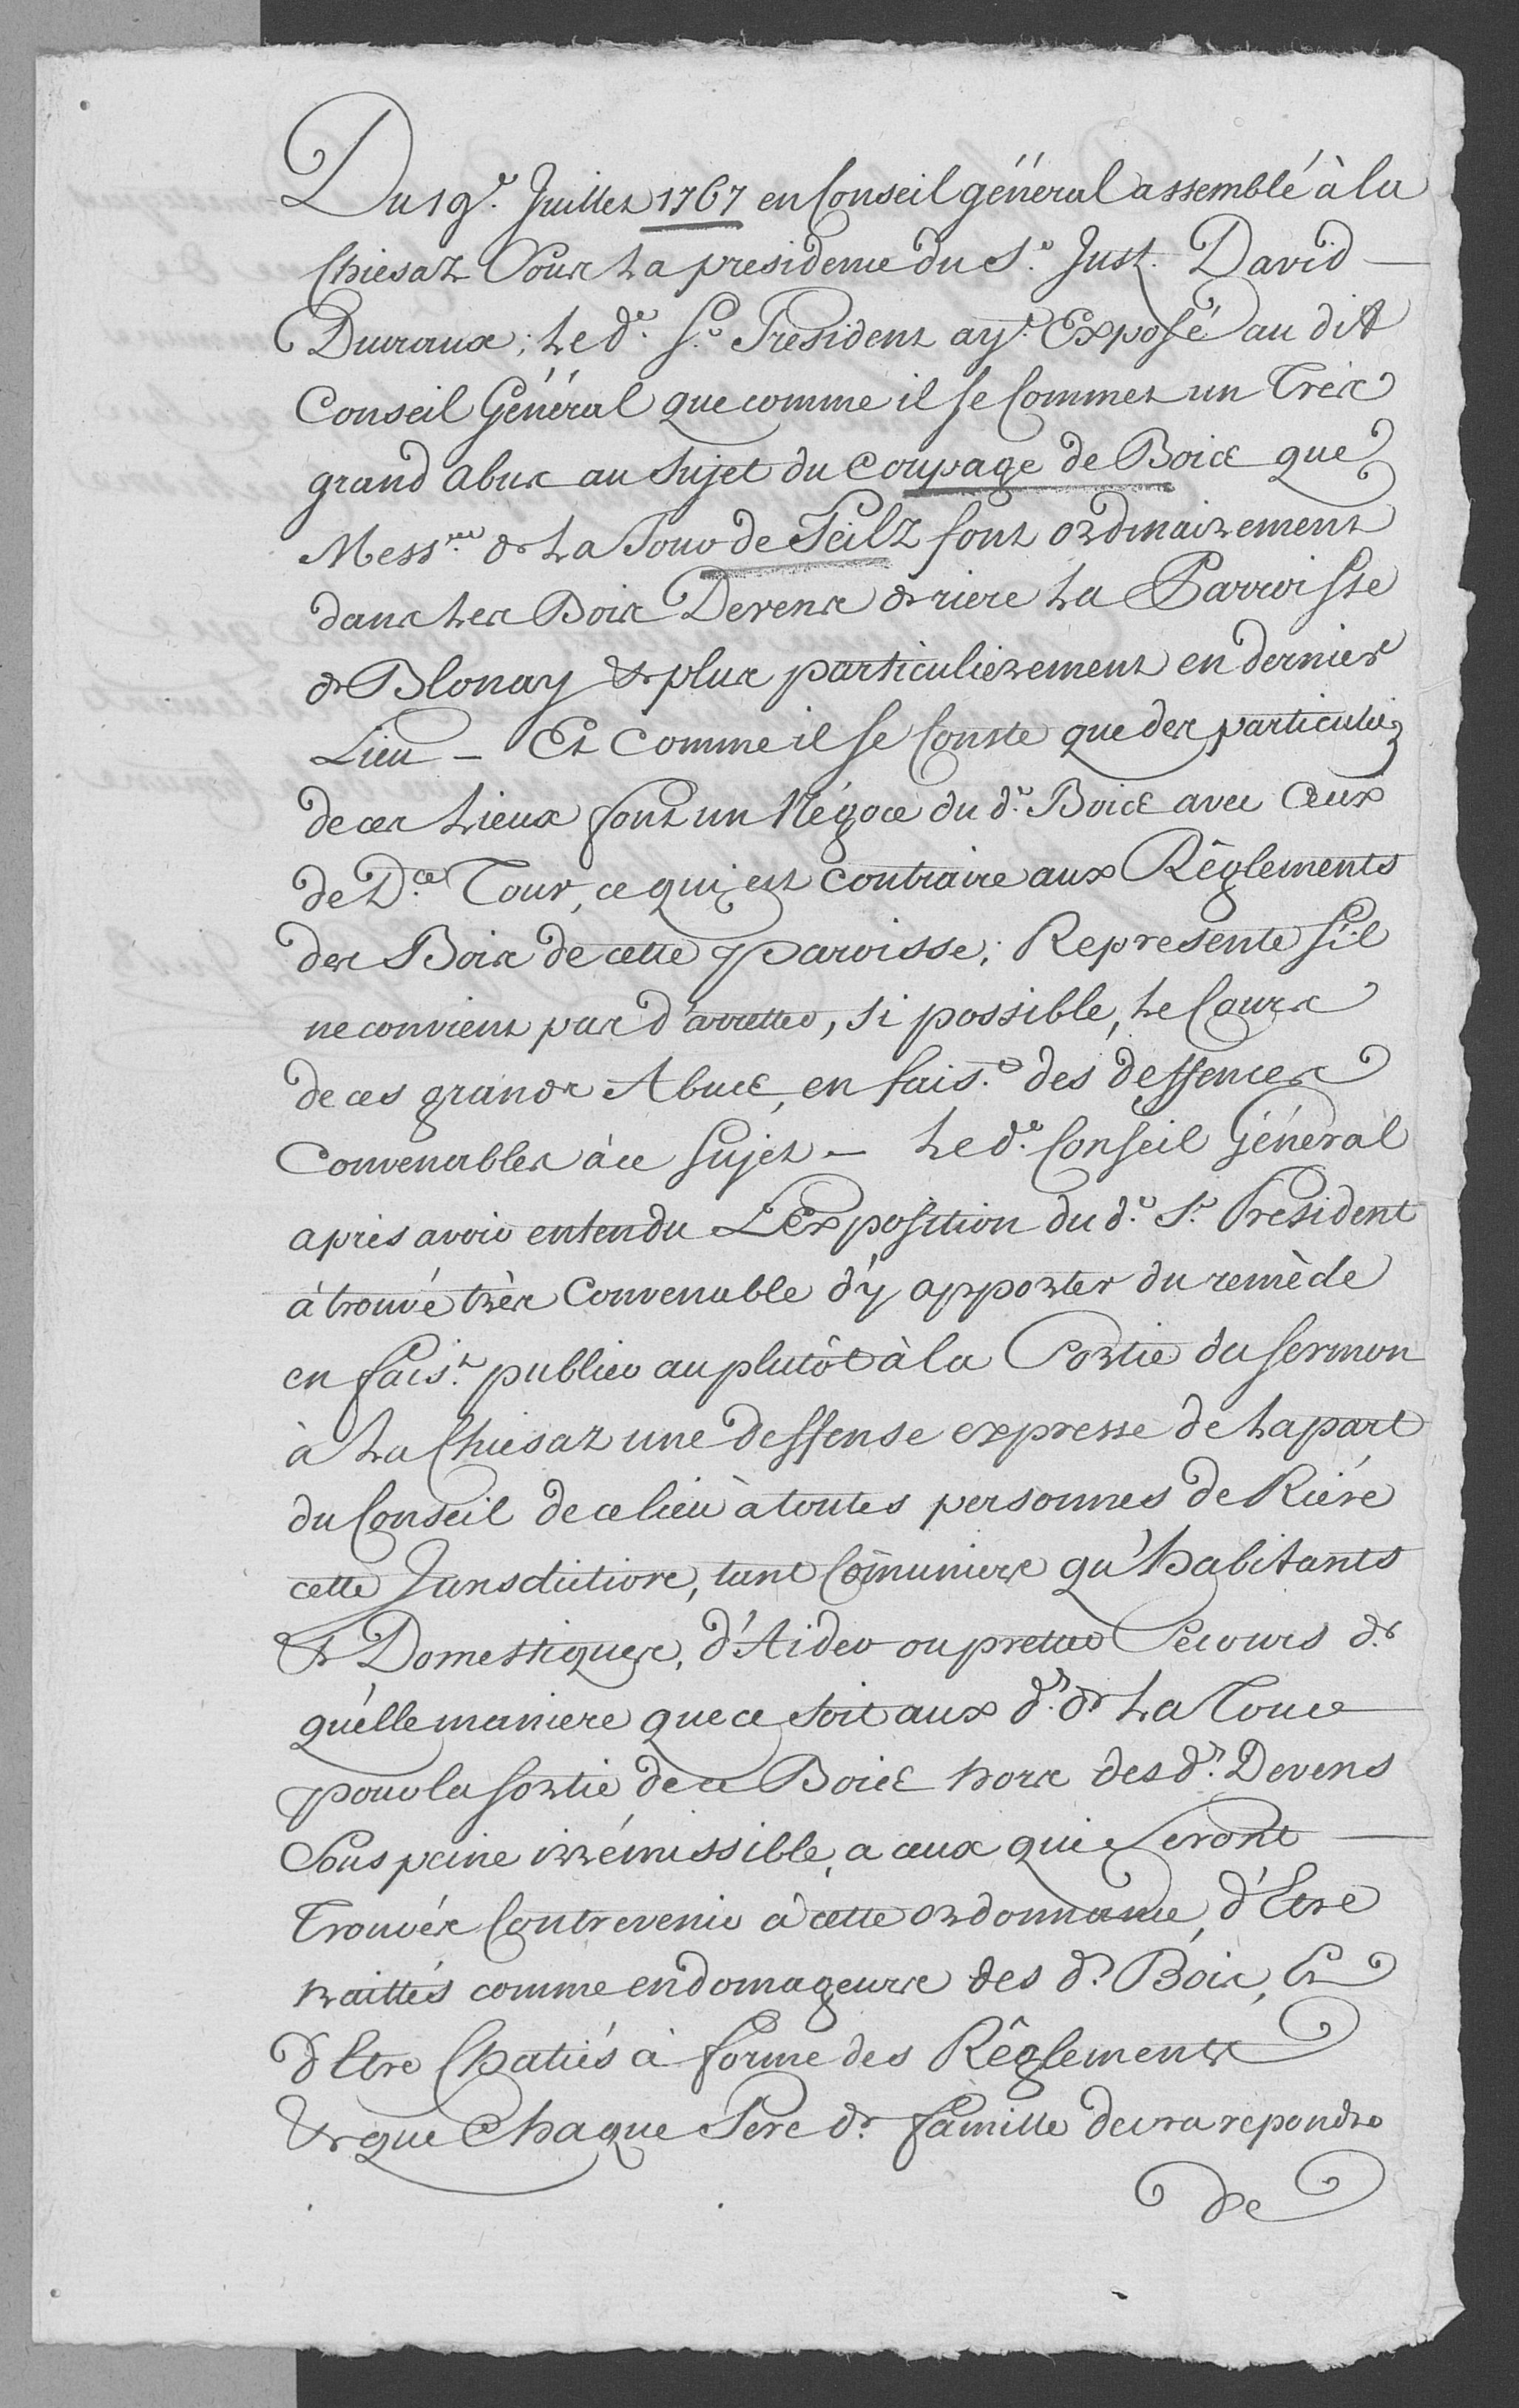 Du 19.e Juillet 1767 en Conseil géneral assemblé à la
Chiesaz Sous La presidence du S.r Just. David —
Ducraux; Le d.t S.r President ay.t Exposé au dit
Conseil Géneral que comme il se Commet un Trés
grand abus au Sujet du Coupage de Bois que
Mess.rs de La Tour de Peilz font ordinairement
dans Les Bois Devens de riere La Parroisse
de Blonay & plus particulierement en dernier
Lieu — Et Comme il se Conste que des particulie
de ces Lieux font un Négoce du d.t Bois avec Ceux
de D.te Tour, ce qui est Contraire aux Règlements
des Bois de cette parroisse; Represente s'il
ne convient pas d'arretter, si possible, Le Cours
de ces grands Abus, en fais.t des deffences
Convenables à ce Sujet — Le d.t Conseil Géneral
aprés avoir entendu L'Exposition du d.t S.r President
à trouvé très Convenable d'y apporter du remède
en fais.t publier au plutôt à la Sortie du Sermon
à La Chiesaz une deffense expresse de La part
du Conseil de ce lieu à toutes personnes de Riére
cette Jurisdiction, tant Co͞muniers qu'habitants
& Domestiques, d'Aider ou pretter Secours de
quèlle maniere que ce soit aux d.ts de La Tour
pour la sortie de ce Bois hors des d.ts Devens
Sous peine irrémissible, a ceux qui Seront —
Trouvés Contrevenir à cette ordonnance, d'Etre
traittés comme endomageurs des d.ts Bois, Et
d'Etre Chatiés à forme des Règlements
& que Chaque Pere de famille devra repondre
de